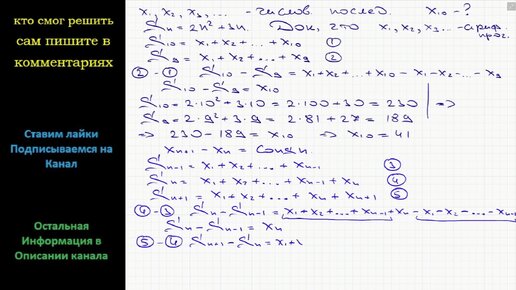 кто смог решить
сам пишите в
комментариях
Ставим лайки
Подписываемся на
Канал
Остальная
Информация в
Описании канала
x₁, x₂, x₃, ... - числов. послед. x₁₀ - ?
Sₙ = 2n² + 3n. Док, что x₁, x₂, x₃ ... - ариф. прог.
S₁₀ = x₁ + x₂ + ... + x₁₀ ①
S₉ = x₁ + x₂ + ... + x₉ ②
② - ① S₁₀ - S₉ = x₁ + x₂ + ... + x₁₀ - x₁ - x₂ - ... - x₉
S₁₀ - S₉ = x₁₀
S₁₀ = 2·10² + 3·10 = 2·100 + 30 = 230
S₉ = 2·9² + 3·9 = 2·81 + 27 = 189 | =>
=> 230 - 189 = x₁₀ => x₁₀ = 41
xₙ₊₁ - xₙ = Const.
Sₙ₋₁ = x₁ + x₂ + ... + xₙ₋₁ ③
Sₙ = x₁ + x₂ + ... + xₙ₋₁ + xₙ ④
Sₙ₊₁ = x₁ + x₂ + ... + xₙ + xₙ₊₁ ⑤
④ - ③ Sₙ - Sₙ₋₁ = x₁ + x₂ + ... + xₙ₋₁ + xₙ - x₁ - x₂ - ... - xₙ₋₁
Sₙ - Sₙ₋₁ = xₙ
⑤ - ④ Sₙ₊₁ - Sₙ = x₁ + x